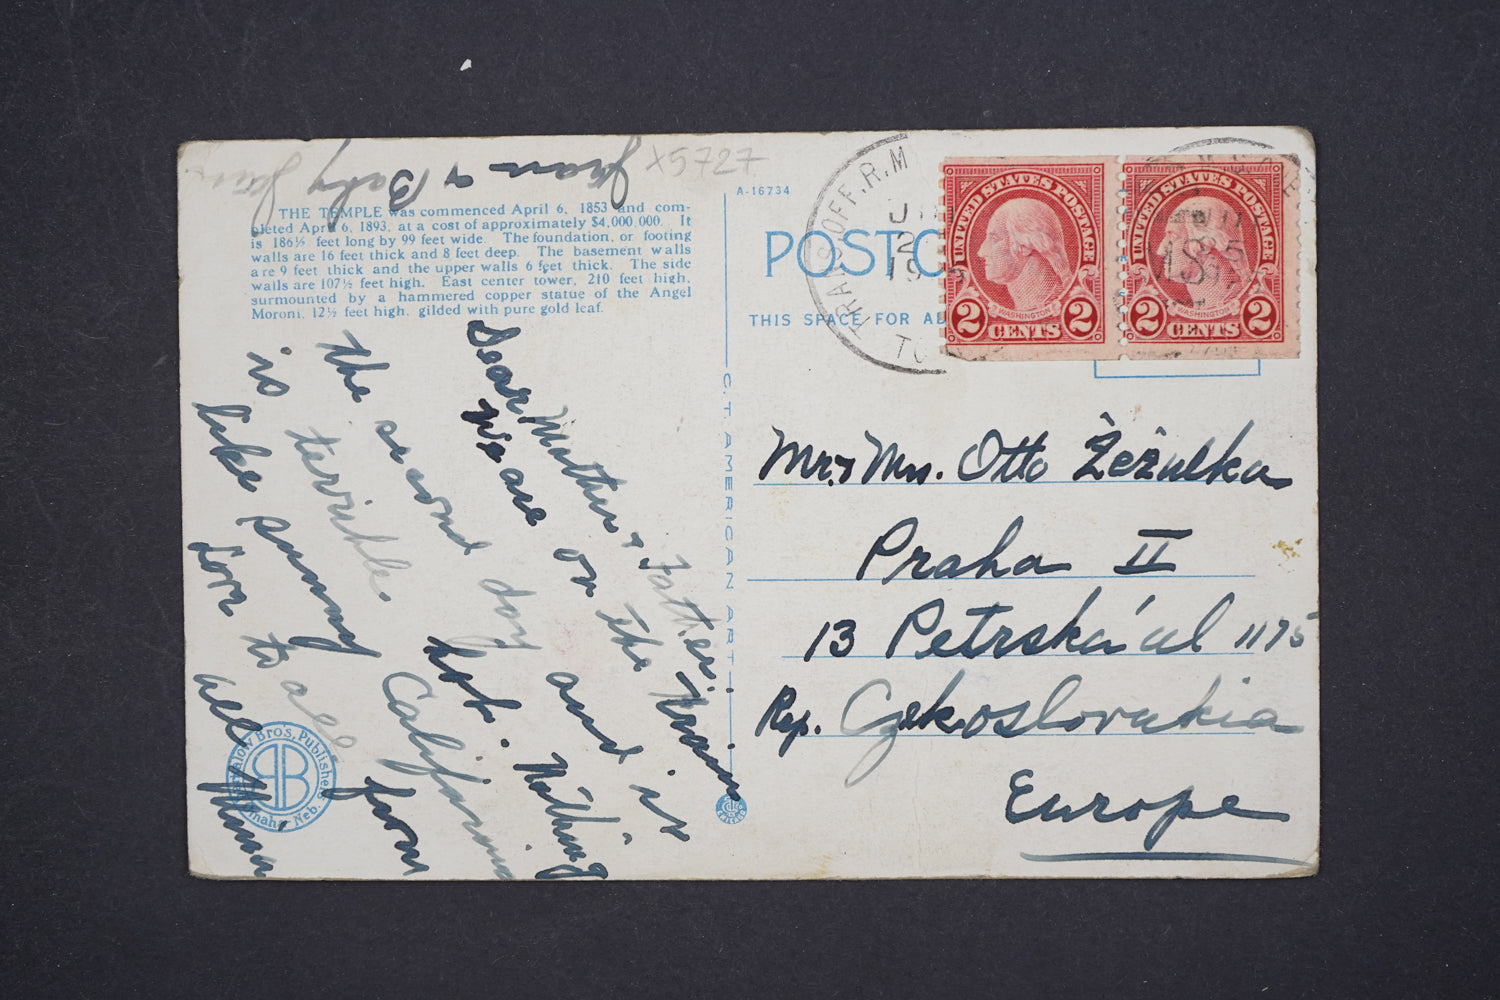 x5727
THE TEMPLE was commenced April 6, 1853 and com-
pleted April 6, 1893, at a cost of approximately $4,000,000. It
is 186½ feet long by 99 feet wide. The foundation, or footing
walls are 16 feet thick and 8 feet deep. The basement walls
are 9 feet thick and the upper walls 6 feet thick. The side
walls are 107½ feet high. East center tower, 210 feet high,
surmounted by a hammered copper statue of the Angel
Moroni, 12½ feet high, gilded with pure gold leaf.
Dear Mother & Father:
We are on the train
the second day and it is
is terrible hot. Nothing
like sunny California
Love to all from
all
Fran & Baby
Bros. Publishers
Omaha, Neb.
C. T. AMERICAN ART
A-16734
POSTC
THIS SPACE FOR AD
TRANS. OFF. R.M
2
19
UNITED STATES POSTAGE
WASHINGTON
2 CENTS 2
UNITED STATES POSTAGE
WASHINGTON
2 CENTS 2
Mr. & Mrs. Otto Žežulka
Praha II
13 Petrská ul 1175
Rep. Czekoslovakia
Europe